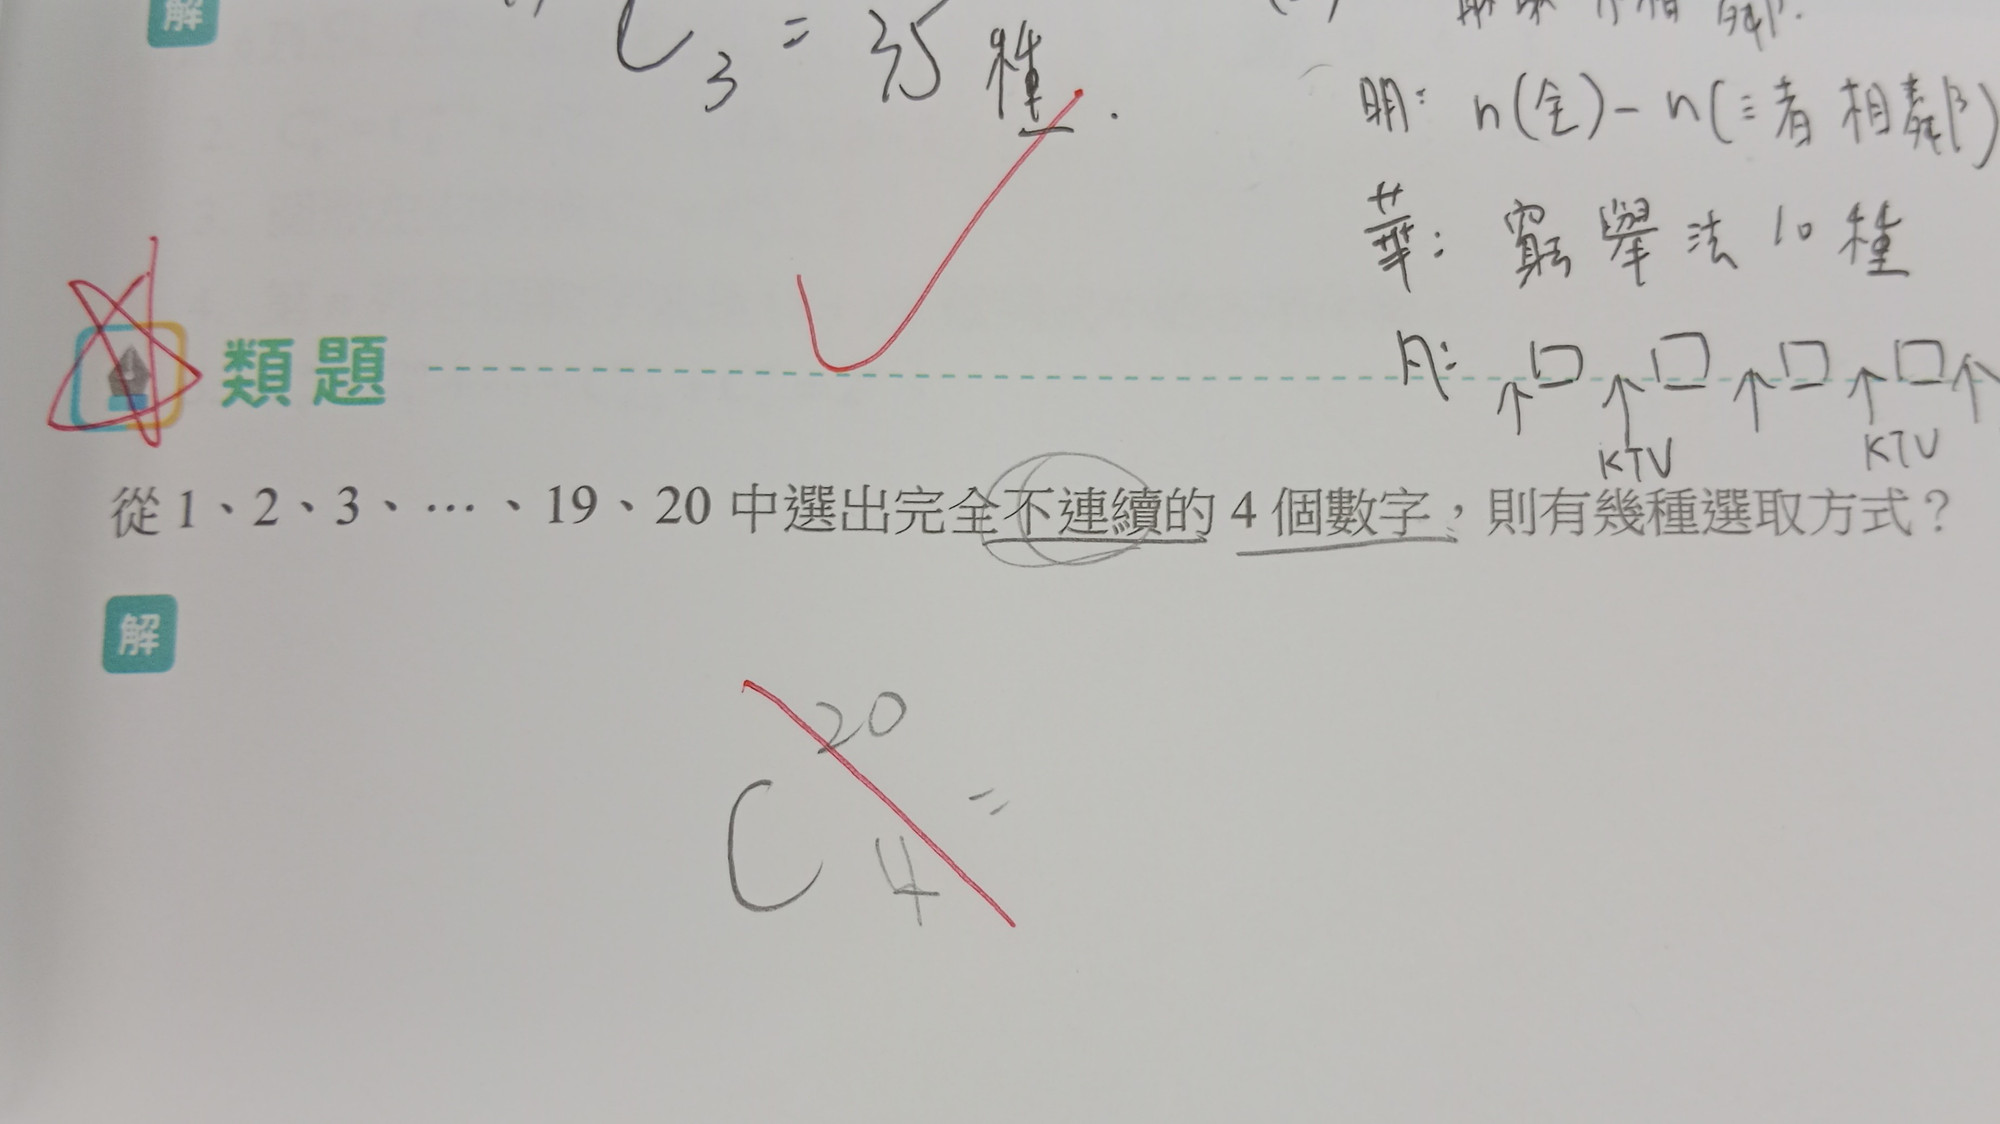 解
C 3 = 35 種.
明: n(全) - n(三者相鄰)
華: 窮舉法 10 種
凡: ↑□↑□↑□↑□↑
KTV KTV
類題
從 1、2、3、…、19、20 中選出完全不連續的 4 個數字，則有幾種選取方式？
解
C 20 4 =